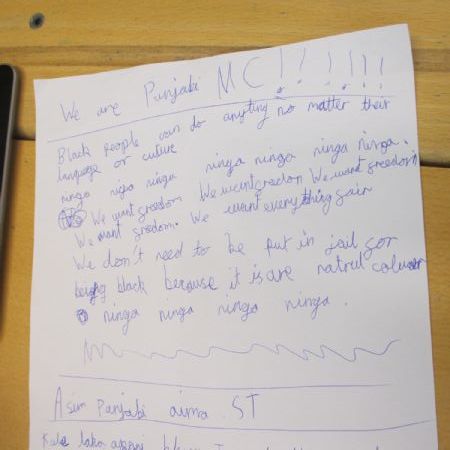 We are Punjabi MC!!!!!!
Black people can do anything no matter their
language or culture
ninga ninga ninga ninga ninga ninga ninga.
We want greedom We want greedom We want greedom
We want greedom. We want everything gair
We don't need to be put in jail gor
being black because it is are natrel colour
ninga ninga ninga ninga.
Asim Punjabi aima ST
laka